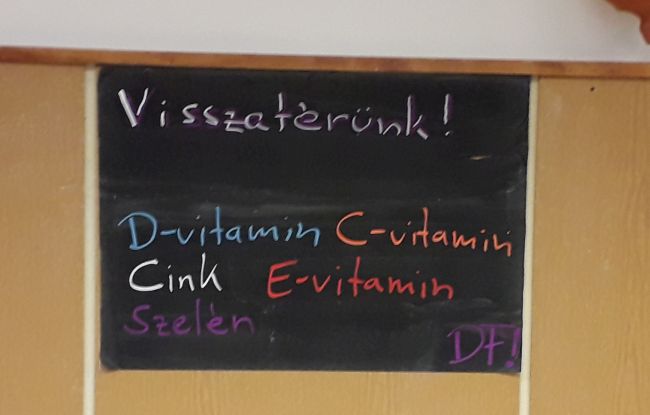 Visszatérünk!
D-vitamin C-vitamin
Cink E-vitamin
Szelén
DF!